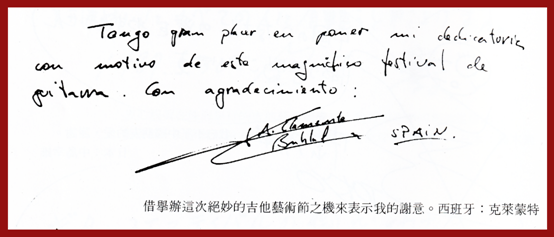 Tango gran placer en poner mi dedicatoria
con motivo de este magnífico festival de
guitarra. Con agradecimiento:
A. Clemente
SPAIN.
借舉辦這次絕妙的吉他藝術節之機來表示我的謝意。西班牙：克萊蒙特